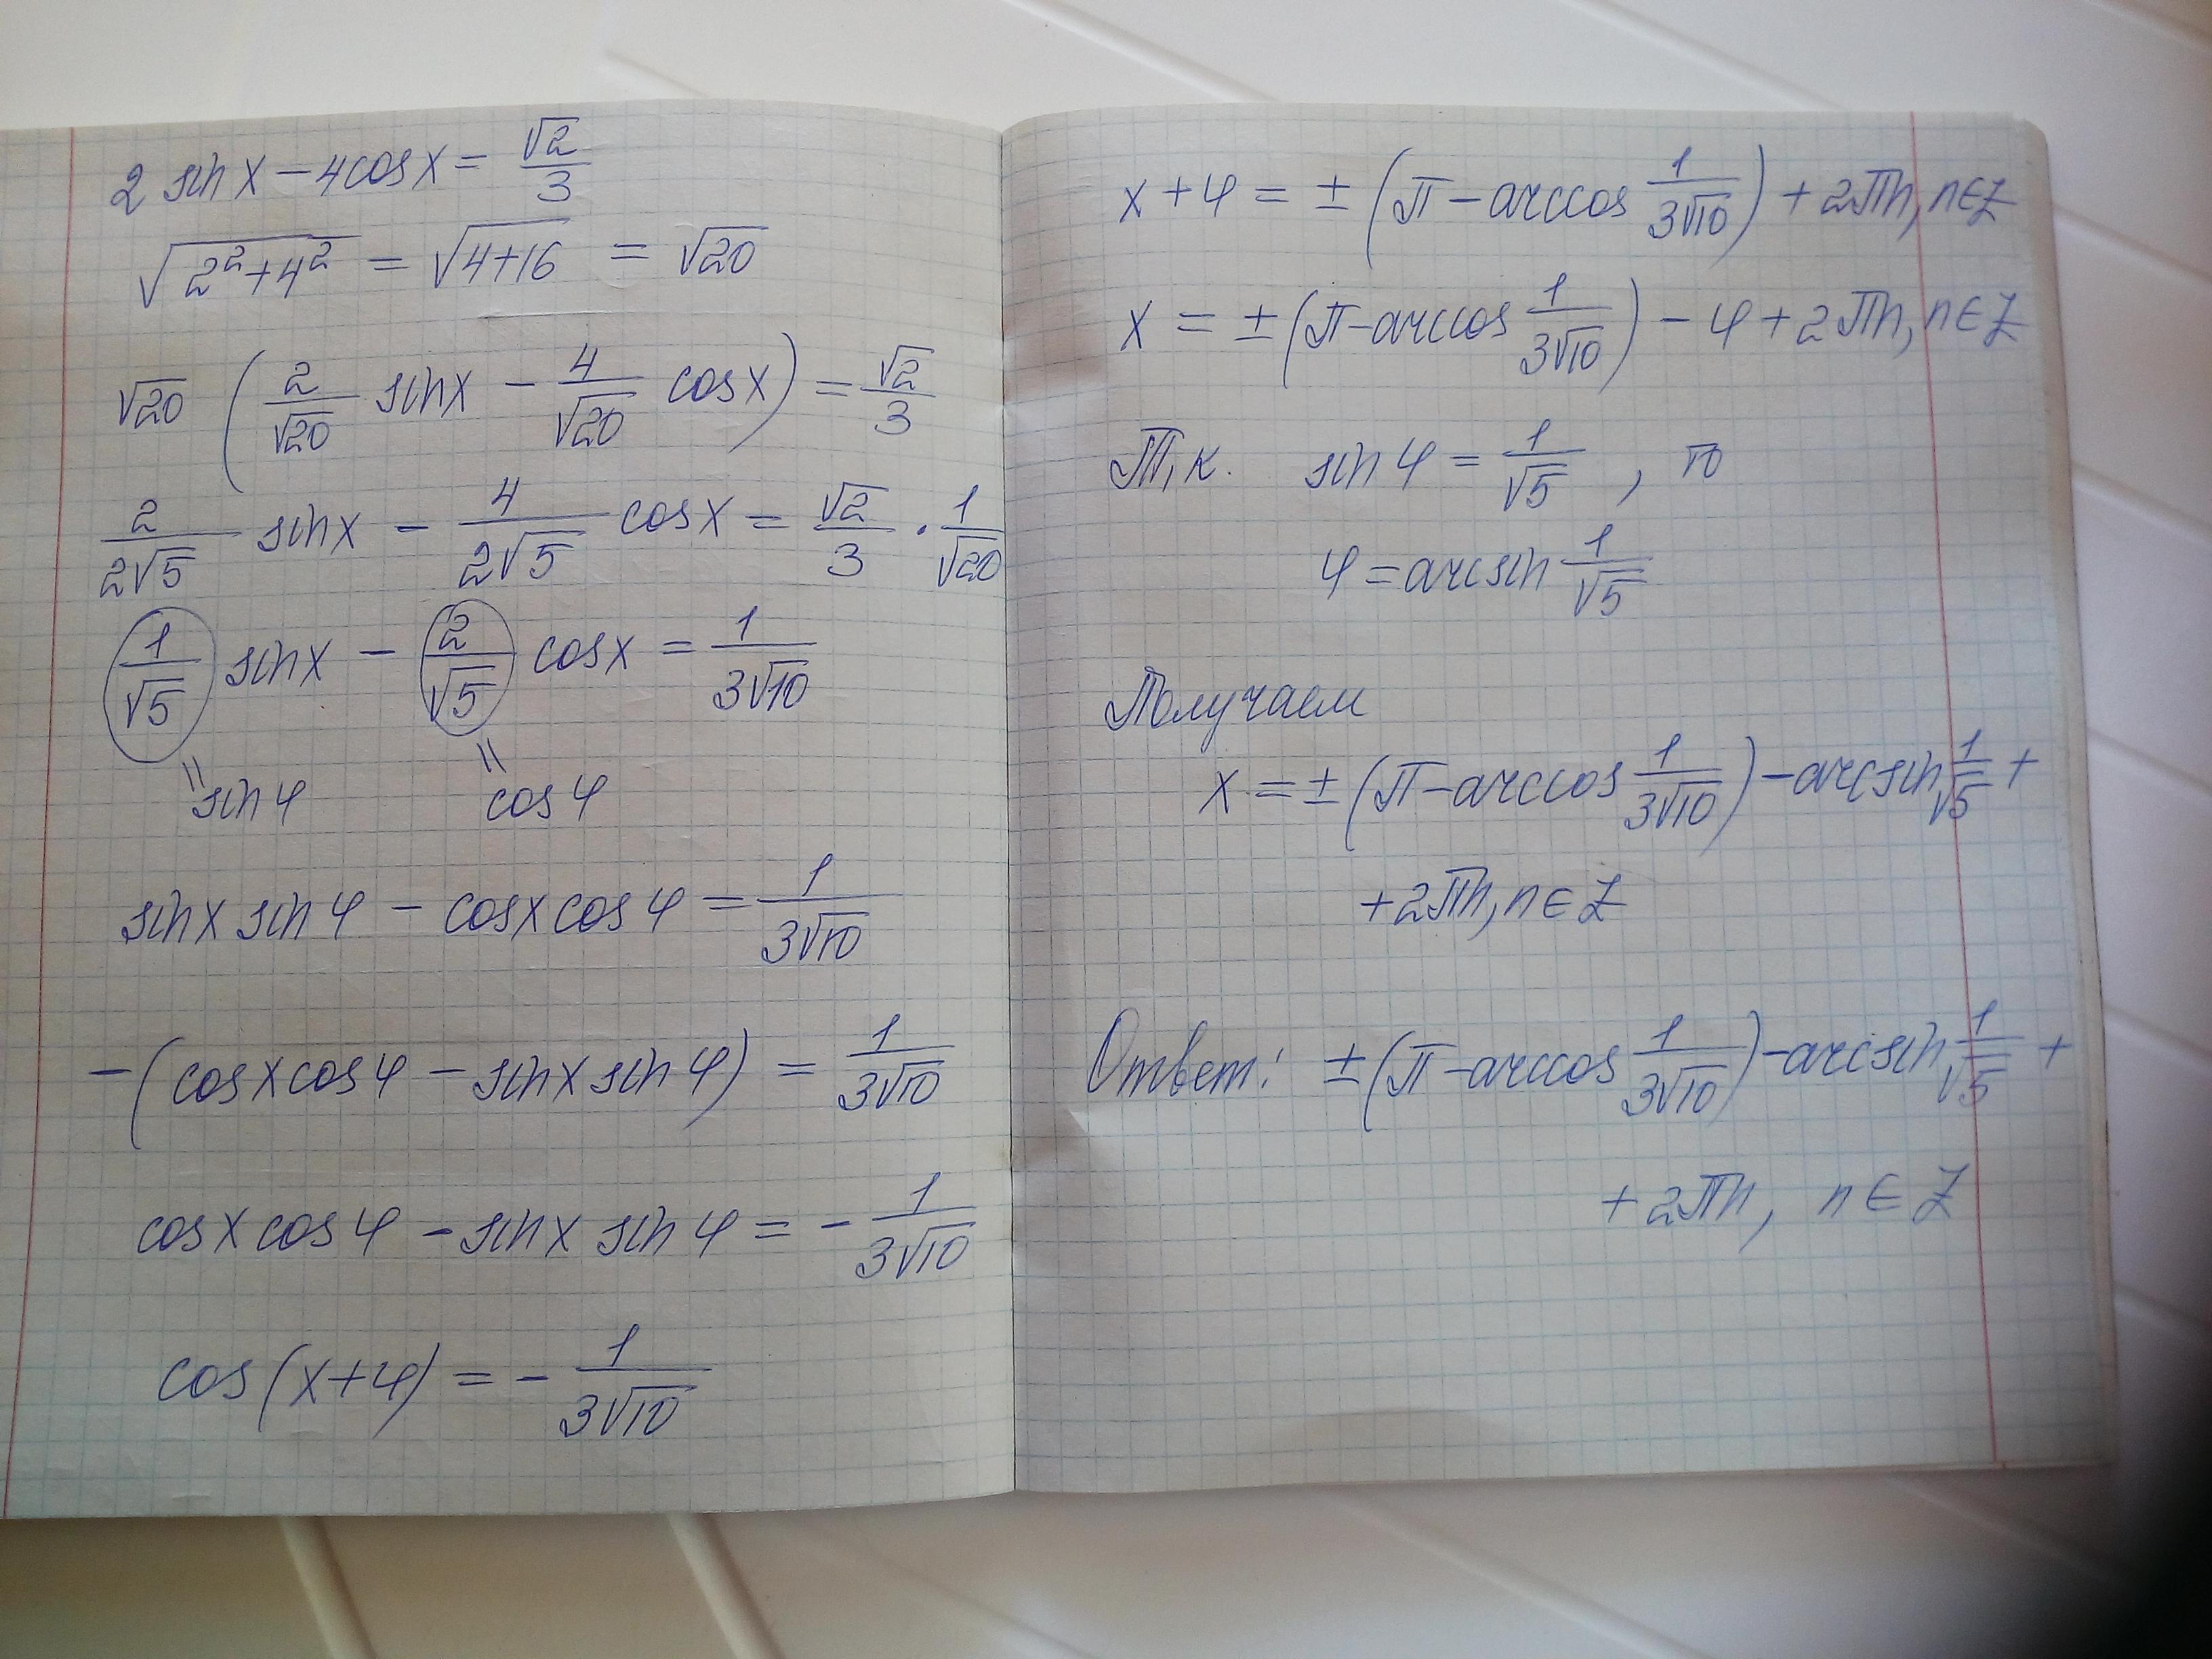 2 sin x − 4cos x = √2/3
√(2²+4²) = √(4+16) = √20
√20 (2/√20 sin x − 4/√20 cos x) = √2/3
2/(2√5) sin x − 4/(2√5) cos x = √2/3 · 1/√20
1/√5 sin x − 2/√5 cos x = 1/(3√10)
= sin φ = cos φ
sin x sin φ − cos x cos φ = 1/(3√10)
−(cos x cos φ − sin x sin φ) = 1/(3√10)
cos x cos φ − sin x sin φ = −1/(3√10)
cos(x+φ) = −1/(3√10)
x + φ = ±(π − arccos 1/(3√10)) + 2πn, n∈Z
x = ±(π − arccos 1/(3√10)) − φ + 2πn, n∈Z
Т.к. sin φ = 1/√5, то
φ = arcsin 1/√5
Получаем
x = ±(π − arccos 1/(3√10)) − arcsin 1/√5 +
+ 2πn, n∈Z
Ответ: ±(π − arccos 1/(3√10)) − arcsin 1/√5 +
+ 2πn, n∈Z